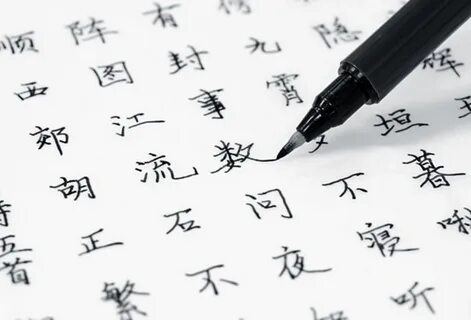 顺 阵 有
西 图 封 九 隐
郊 江 事 霄 辉
胡 流 数 垣
五 正 石 问 不 暮
首 繁 不 夜 寝 啾
听